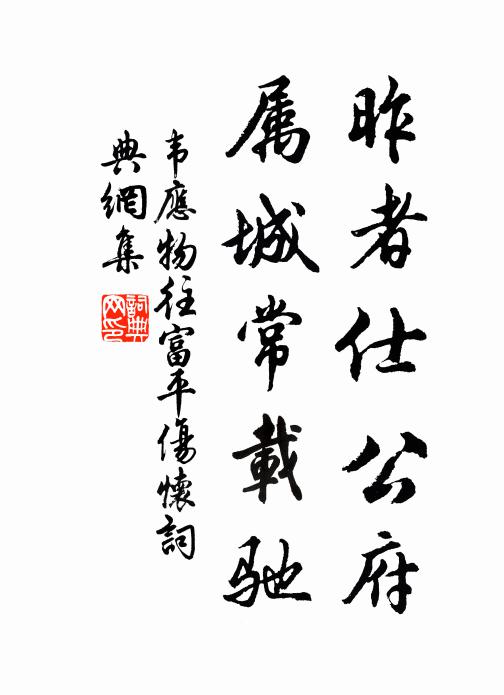 昨者仕公府
属城常載驰
韦應物往富平傷懷詞
典網集
詞典网印